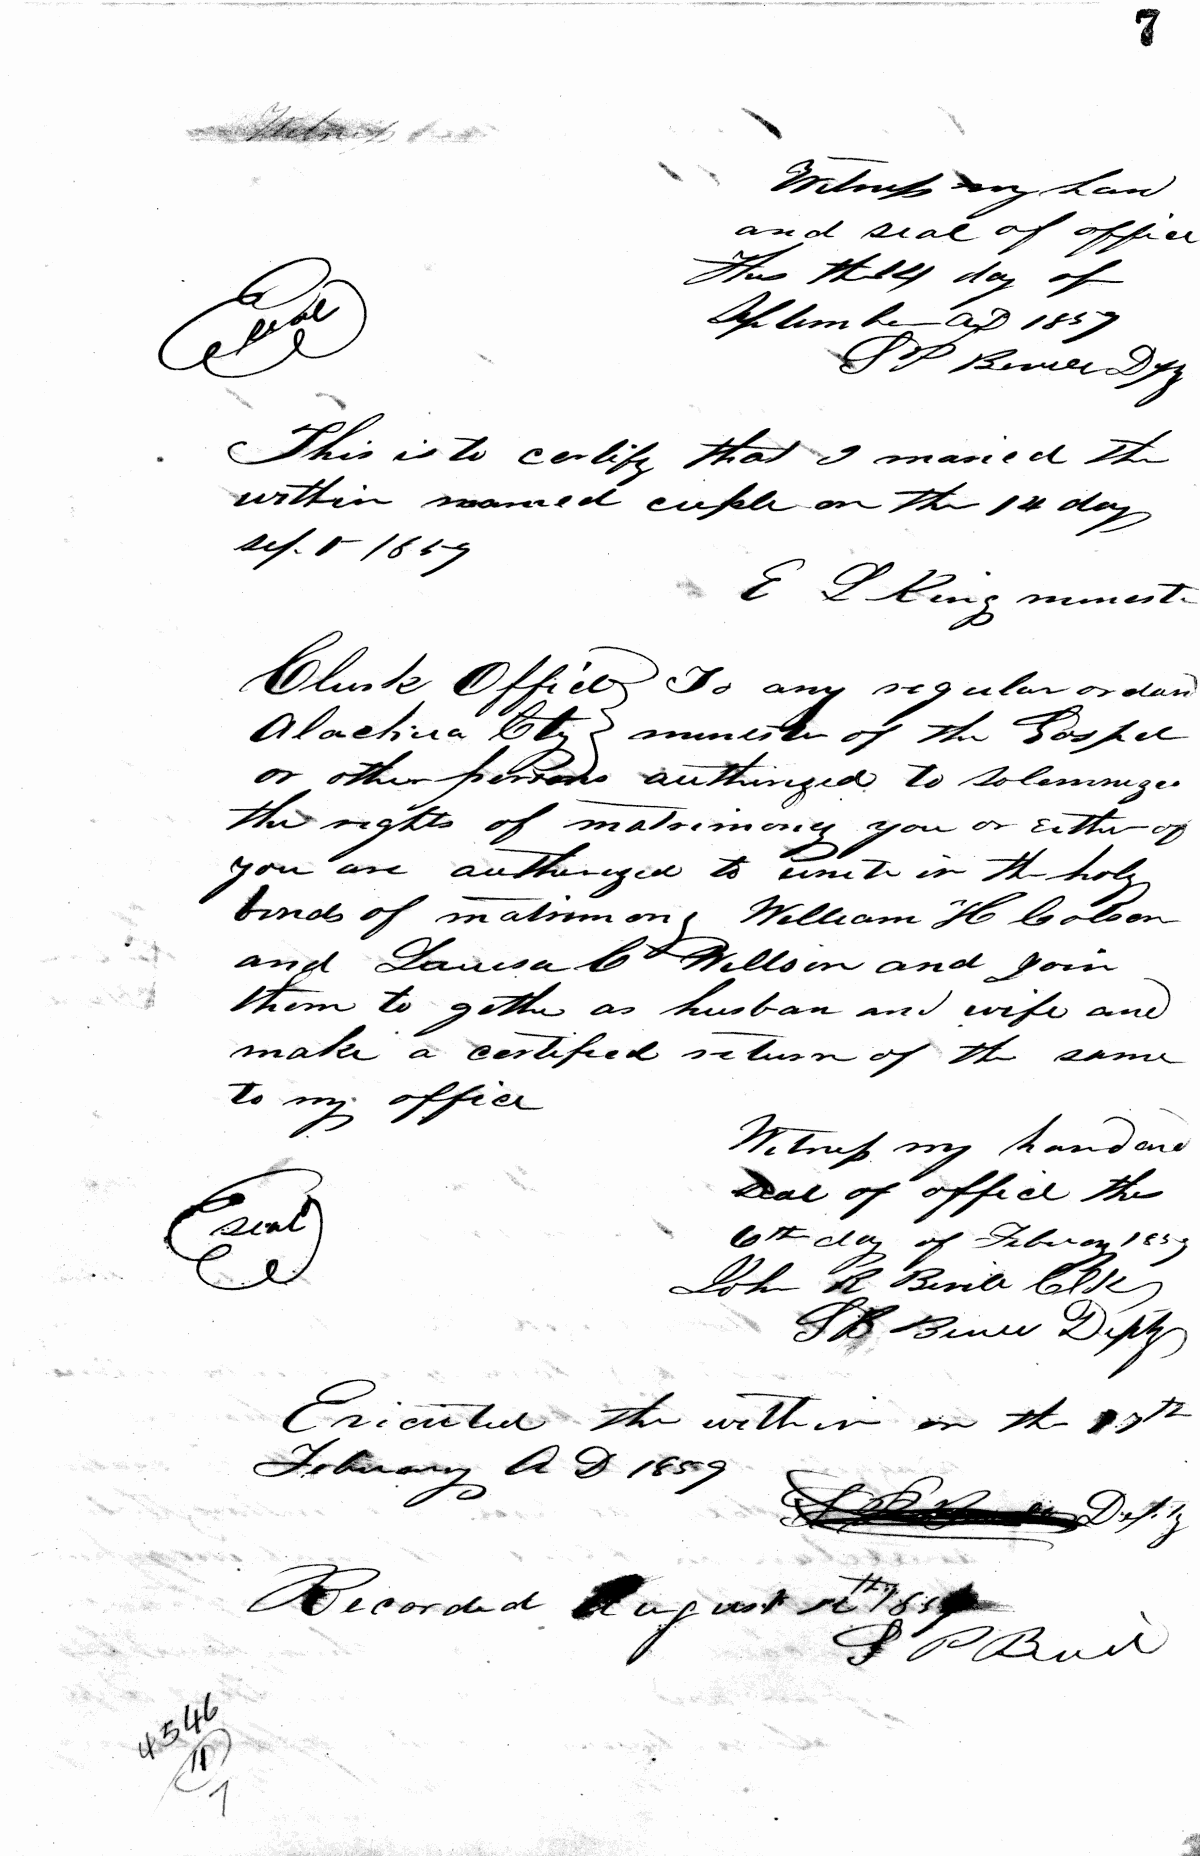 7
Witness
Witness my han
and seal of office
this the 14 day of
September AD 1859
seal
S P Beville Dpty
This is to certify that I maried the
within named cuple on the 14 day
sep. t 1859
E L King minest
Clurk Office } To any regular ordani
Alachua Cty } minester of the Gospel
or other persons authirized to solemnize
the rights of matrimony you or either of
you are autherized to unite in the holy
bonds of matrimony William H Colson
and Lauisa C Willson and join
them to gether as husban and wife and
make a certified return of the same
to my office
Witness my hand and
seal of office this
seal
6th day of February 1859
John R Beville Clk
S P Beville Depty
Exicuted the within on the 17th
February A D 1859
Depty
Recorded August 1859
S P Bevill
4546
11
7